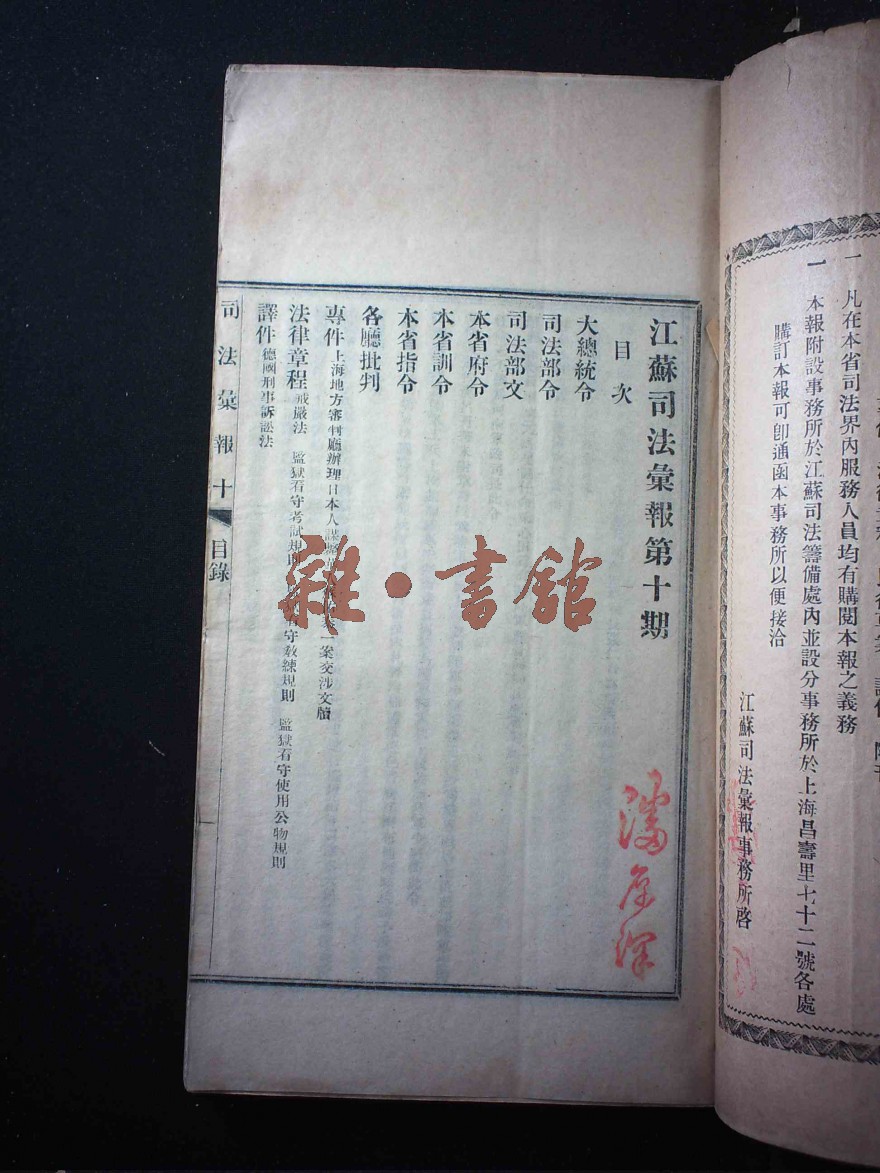 一 凡在本省司法界內服務人員均有購閱本報之義務
一 本報附設事務所於江蘇司法籌備處內並設分事務所於上海昌壽里七十二號各處
購訂本報可卽通函本事務所以便接洽
江蘇司法彙報事務所啓
江蘇司法彙報第十期
目次
大總統令
司法部令
司法部文
本省府令
本省訓令
本省指令
各廳批判
專件 上海地方審判廳辦理日本人謀 一案交涉文牘
法律章程 戒嚴法 監獄看守考試規則 看守教練規則 監獄看守使用公物規則
譯件 德國刑事訴訟法
司法彙報十 目錄
雜·書館